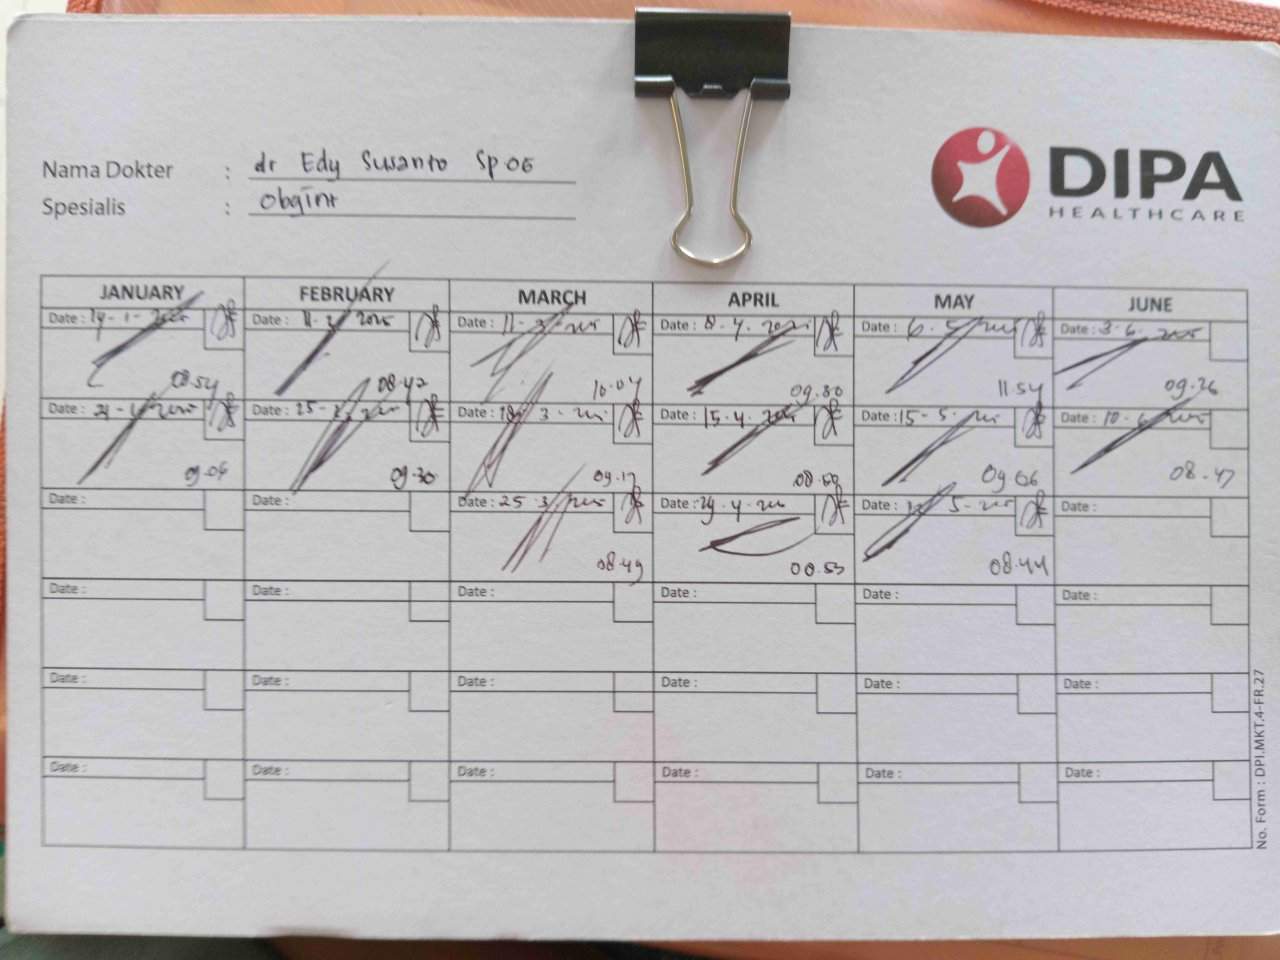 Nama Dokter : dr Edy Susanto Sp.OG
Spesialis : Obgin
DIPA
HEALTHCARE
JANUARY FEBRUARY MARCH APRIL MAY JUNE
Date : 14-1-2025 Date : 11-2-2025 Date : 11-3-2025 Date : 8-4-2025 Date : 6-5-2025 Date : 3-6-2025
08.54 08.42 10.04 09.30 11.54 09.26
Date : Date : 25-2-2025 Date : 18-3-2025 Date : 15-4-2025 Date : 15-5-2025 Date : 10-6-2025
09.30 09.17 08.59 09.06 08.47
Date : Date : Date : 25-3-2025 Date : 29-4-2025 Date : Date :
08.49 08.44
Date : Date : Date : Date : Date : Date :
Date : Date : Date : Date : Date : Date :
Date : Date : Date : Date : Date : Date :
No. Form : DPI.MKT.4-FR.27